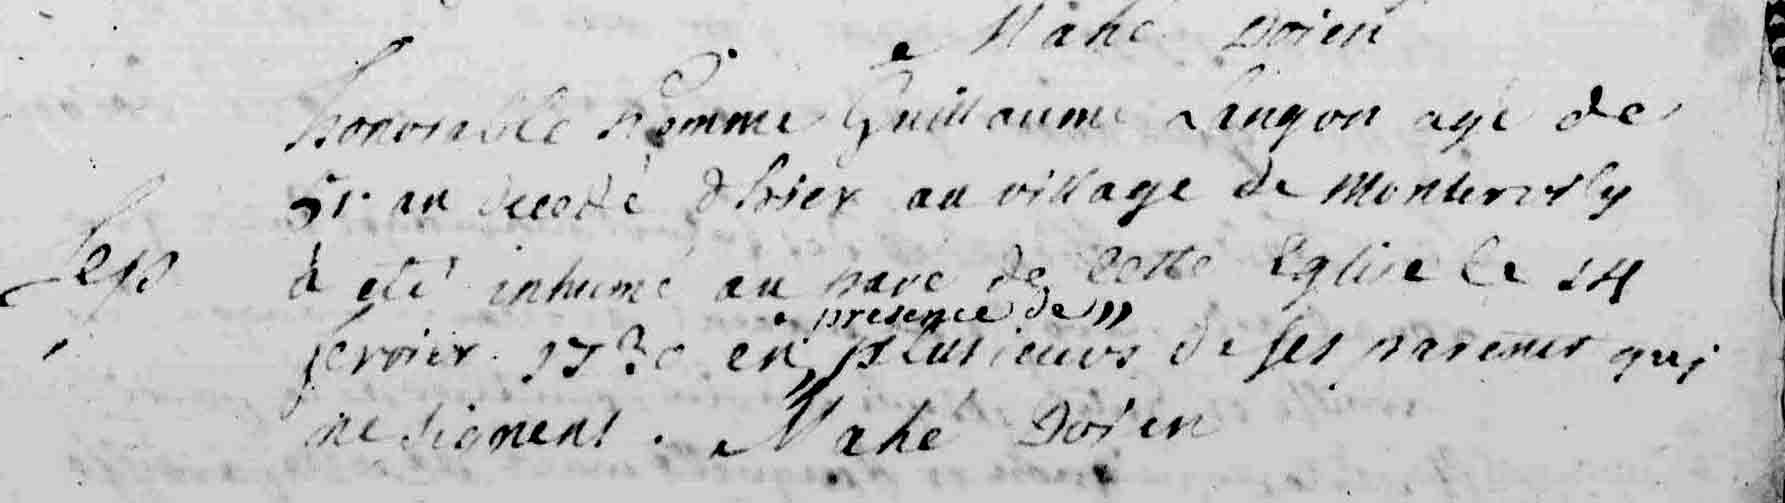 Mahé Doien
honorable homme Guillaume Langon agé de
51 an decedé dhier au village de
à eté inhumé au pavé de cette Eglise le 14
fevrier 1730 en presence de plusieurs de ses parents qui
ne signent. Mahé Doien